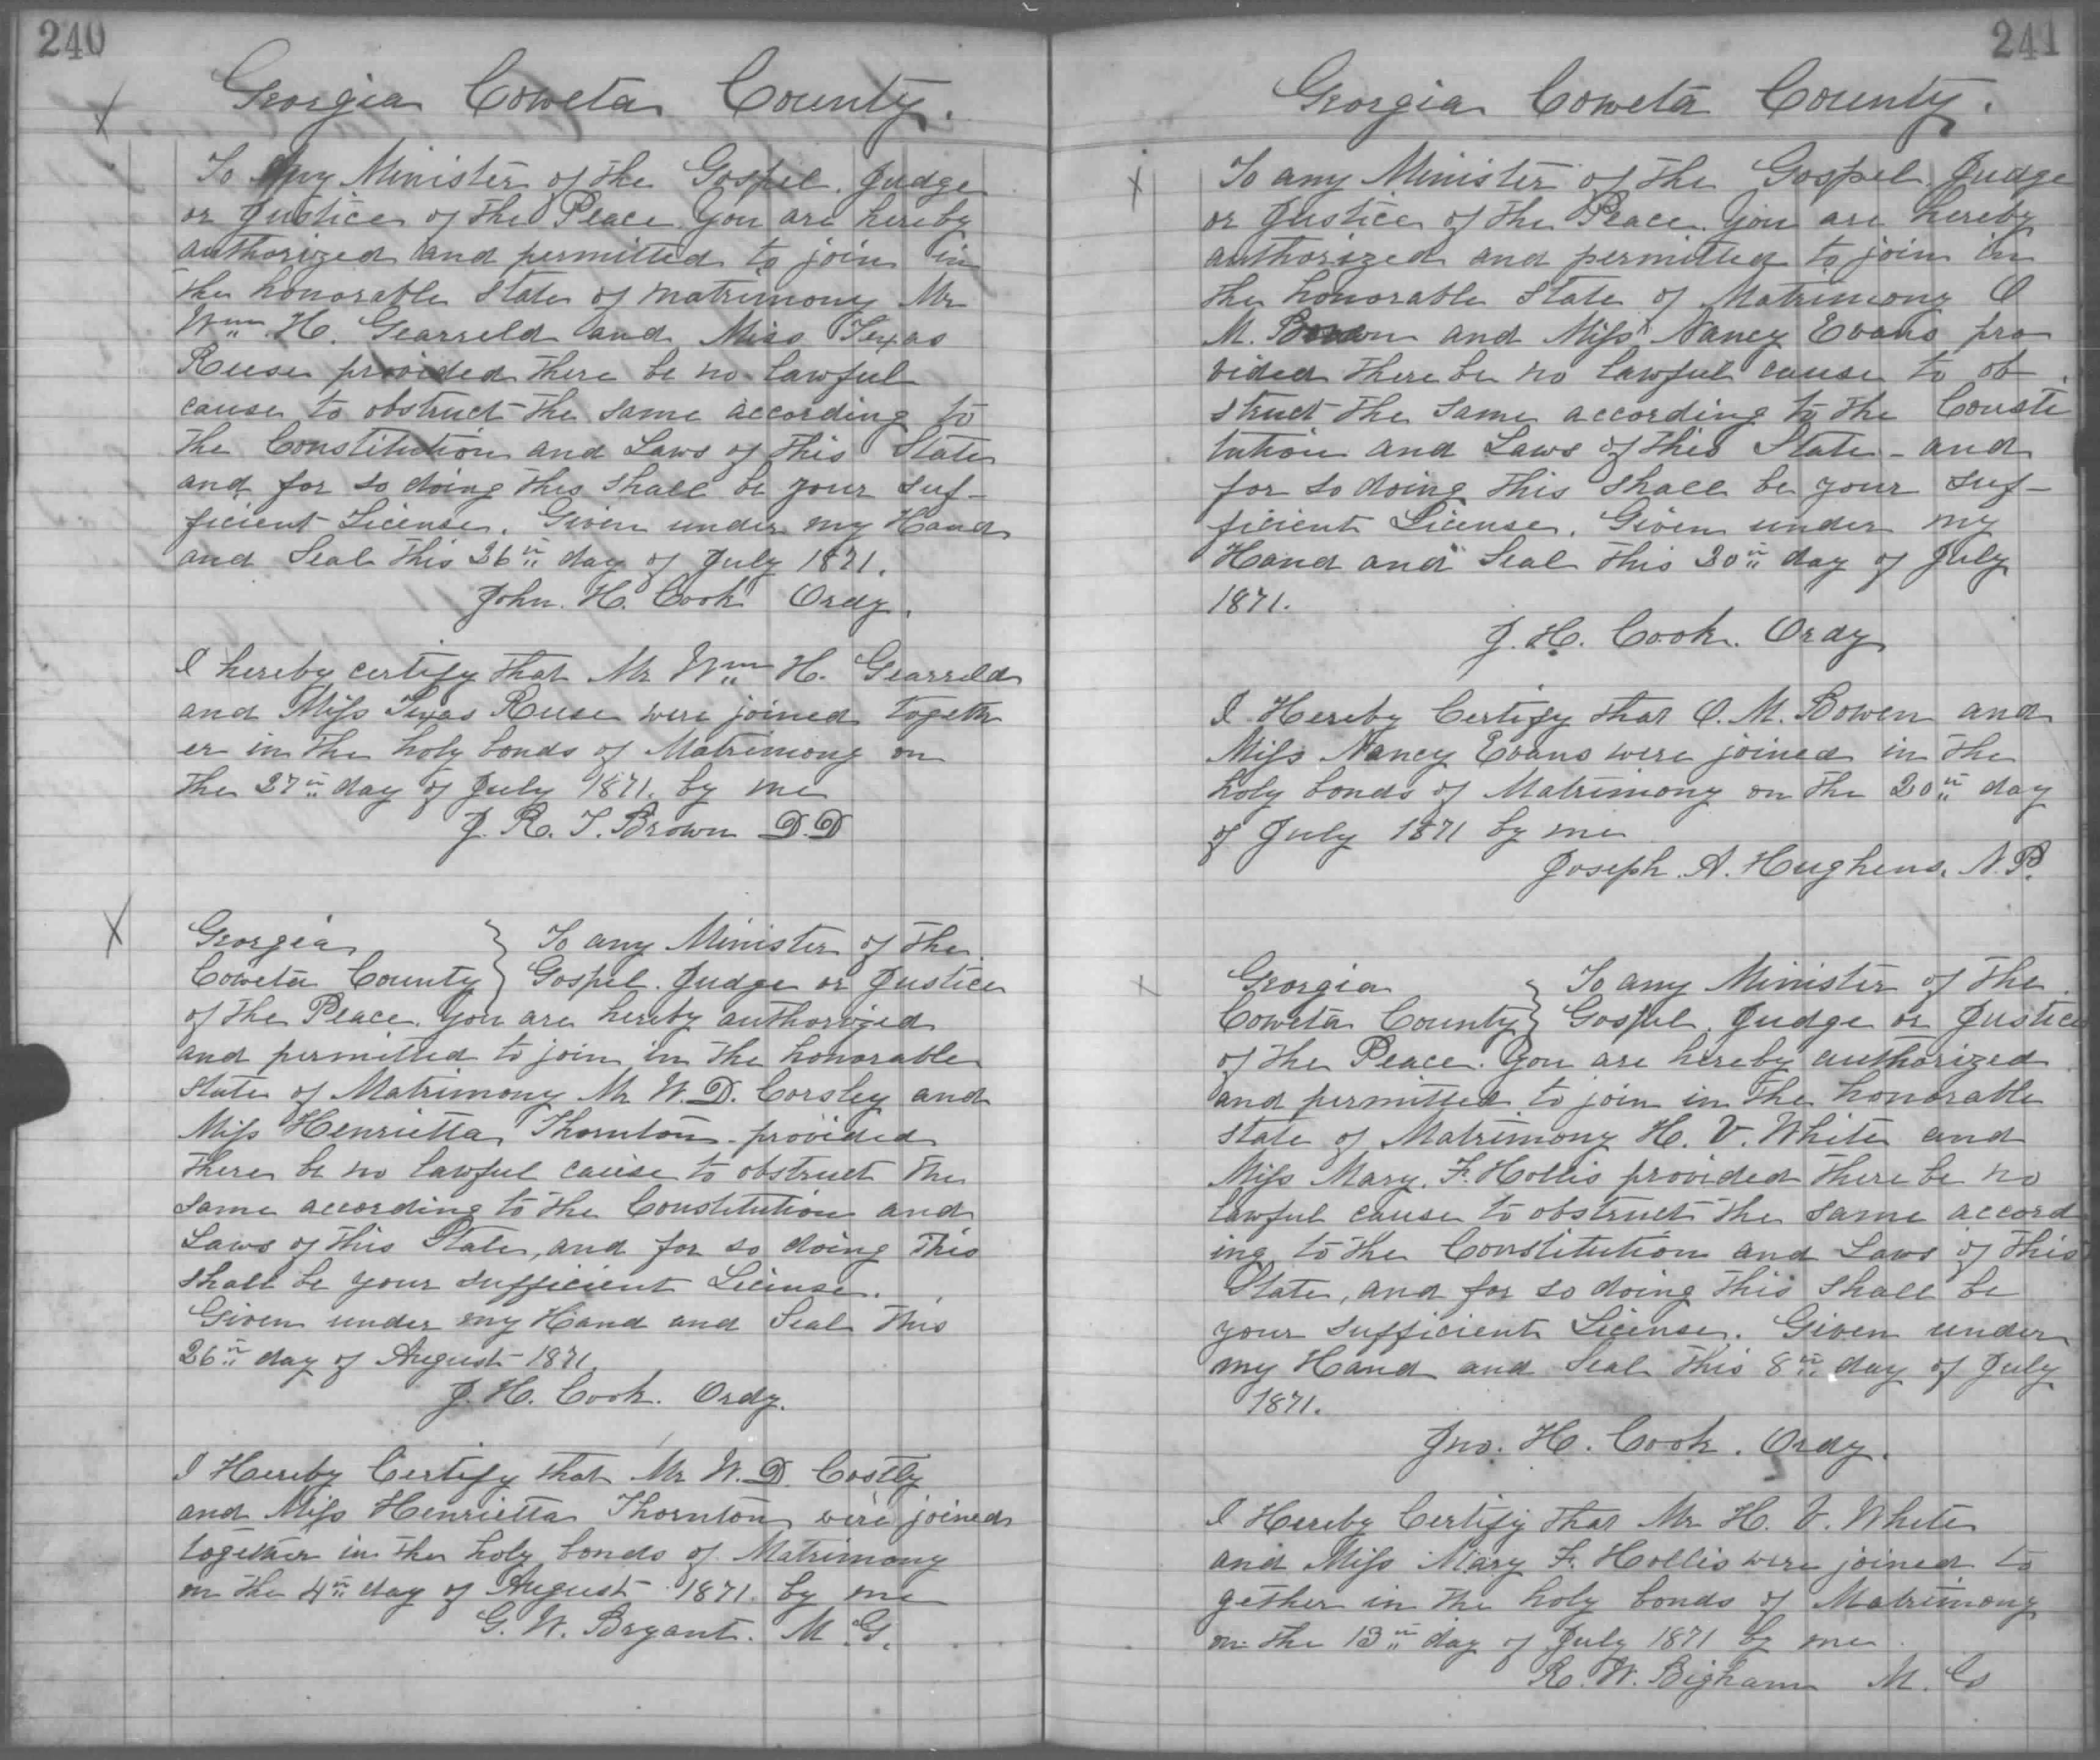 240
Georgia Coweta County.
To Any Minister of the Gospel, Judge
or Justice of the Peace. You are hereby
authorized and permitted to join in
the honorable state of matrimony Mr
Wm H. Gearreld and Miss Texas
Reese provided there be no lawful
cause to obstruct the same according to
the Constitution and Laws of this State
and for so doing this shall be your suf-
ficient License. Given under my Hand
and Seal this 26th day of July 1871.
John. H. Cook Ordy.
I hereby certify that Mr Wm H. Gearreld
and Miss Texas Reese were joined togeth
er in the holy bonds of Matrimony on
the 27th day of July 1871. by me
J. R. T. Brown D.D
Georgia } To any Minister of the
Coweta County } Gospel. Judge or Justice
of the Peace. You are hereby authorized
and permitted to join in the honorable
state of Matrimony Mr W. D. Corsley and
Miss Henrietta Thornton provided
there be no lawful cause to obstruct the
same according to the Constitution and
Laws of this State, and for so doing this
shall be your sufficient License.
Given under my Hand and Seal this
26th day of August 1871.
J. H. Cook. Ordy.
I Hereby Certify that Mr W. D. Costly
and Miss Henrietta Thornton were joined
together in the holy bonds of Matrimony
on the 4th day of August 1871. by me
G. W. Bryant. M. G.
241
Georgia Coweta County.
To any Minister of the Gospel, Judge
or Justice of the Peace. You are hereby
authorized and permitted to join in
the honorable state of Matrimony O
M. and Miss Nancy Evans pro
vided there be no lawful cause to ob
struct the same according to the Consti
tution and Laws of this State - and
for so doing this shall be your suf-
ficient License. Given under my
Hand and Seal this 20th day of July
1871.
J. H. Cook. Ordy
I Hereby Certify that O. M. Bowen and
Miss Nancy Evans were joined in the
holy bonds of Matrimony on the 20th day
of July 1871 by me
Joseph. A. Hughens. N. P.
Georgia } To any Minister of the
Coweta County } Gospel. Judge or Justice
of the Peace. You are hereby authorized
and permitted to join in the honorable
state of Matrimony H. V. White and
Miss Mary. F. Hollis provided there be no
lawful cause to obstruct the same accord
ing to the Constitution and Laws of this
State, and for so doing this shall be
your sufficient License. Given under
my Hand and Seal this 8th day of July
1871.
Jno. H. Cook. Ordy.
I Hereby Certify that Mr H. V. White
and Miss Mary F. Hollis were joined to
gether in the holy bonds of Matrimony
on the 13th day of July 1871 by me
R. W. Bigham M. G